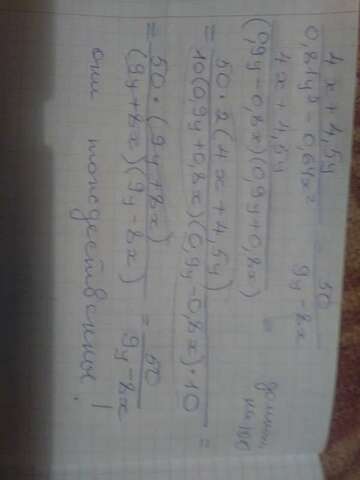 4x+4,5y / 0,81y²-0,64x²   50 / 9y-8x
4x+4,5y / (0,9y-0,8x)(0,9y+0,8x) =
на 100
= 50·2(4x+4,5y) / 10(0,9y+0,8x)(0,9y-0,8x)·10 =
= 50·(9y+8x) / (9y+8x)(9y-8x) = 50 / 9y-8x
они тождественны!